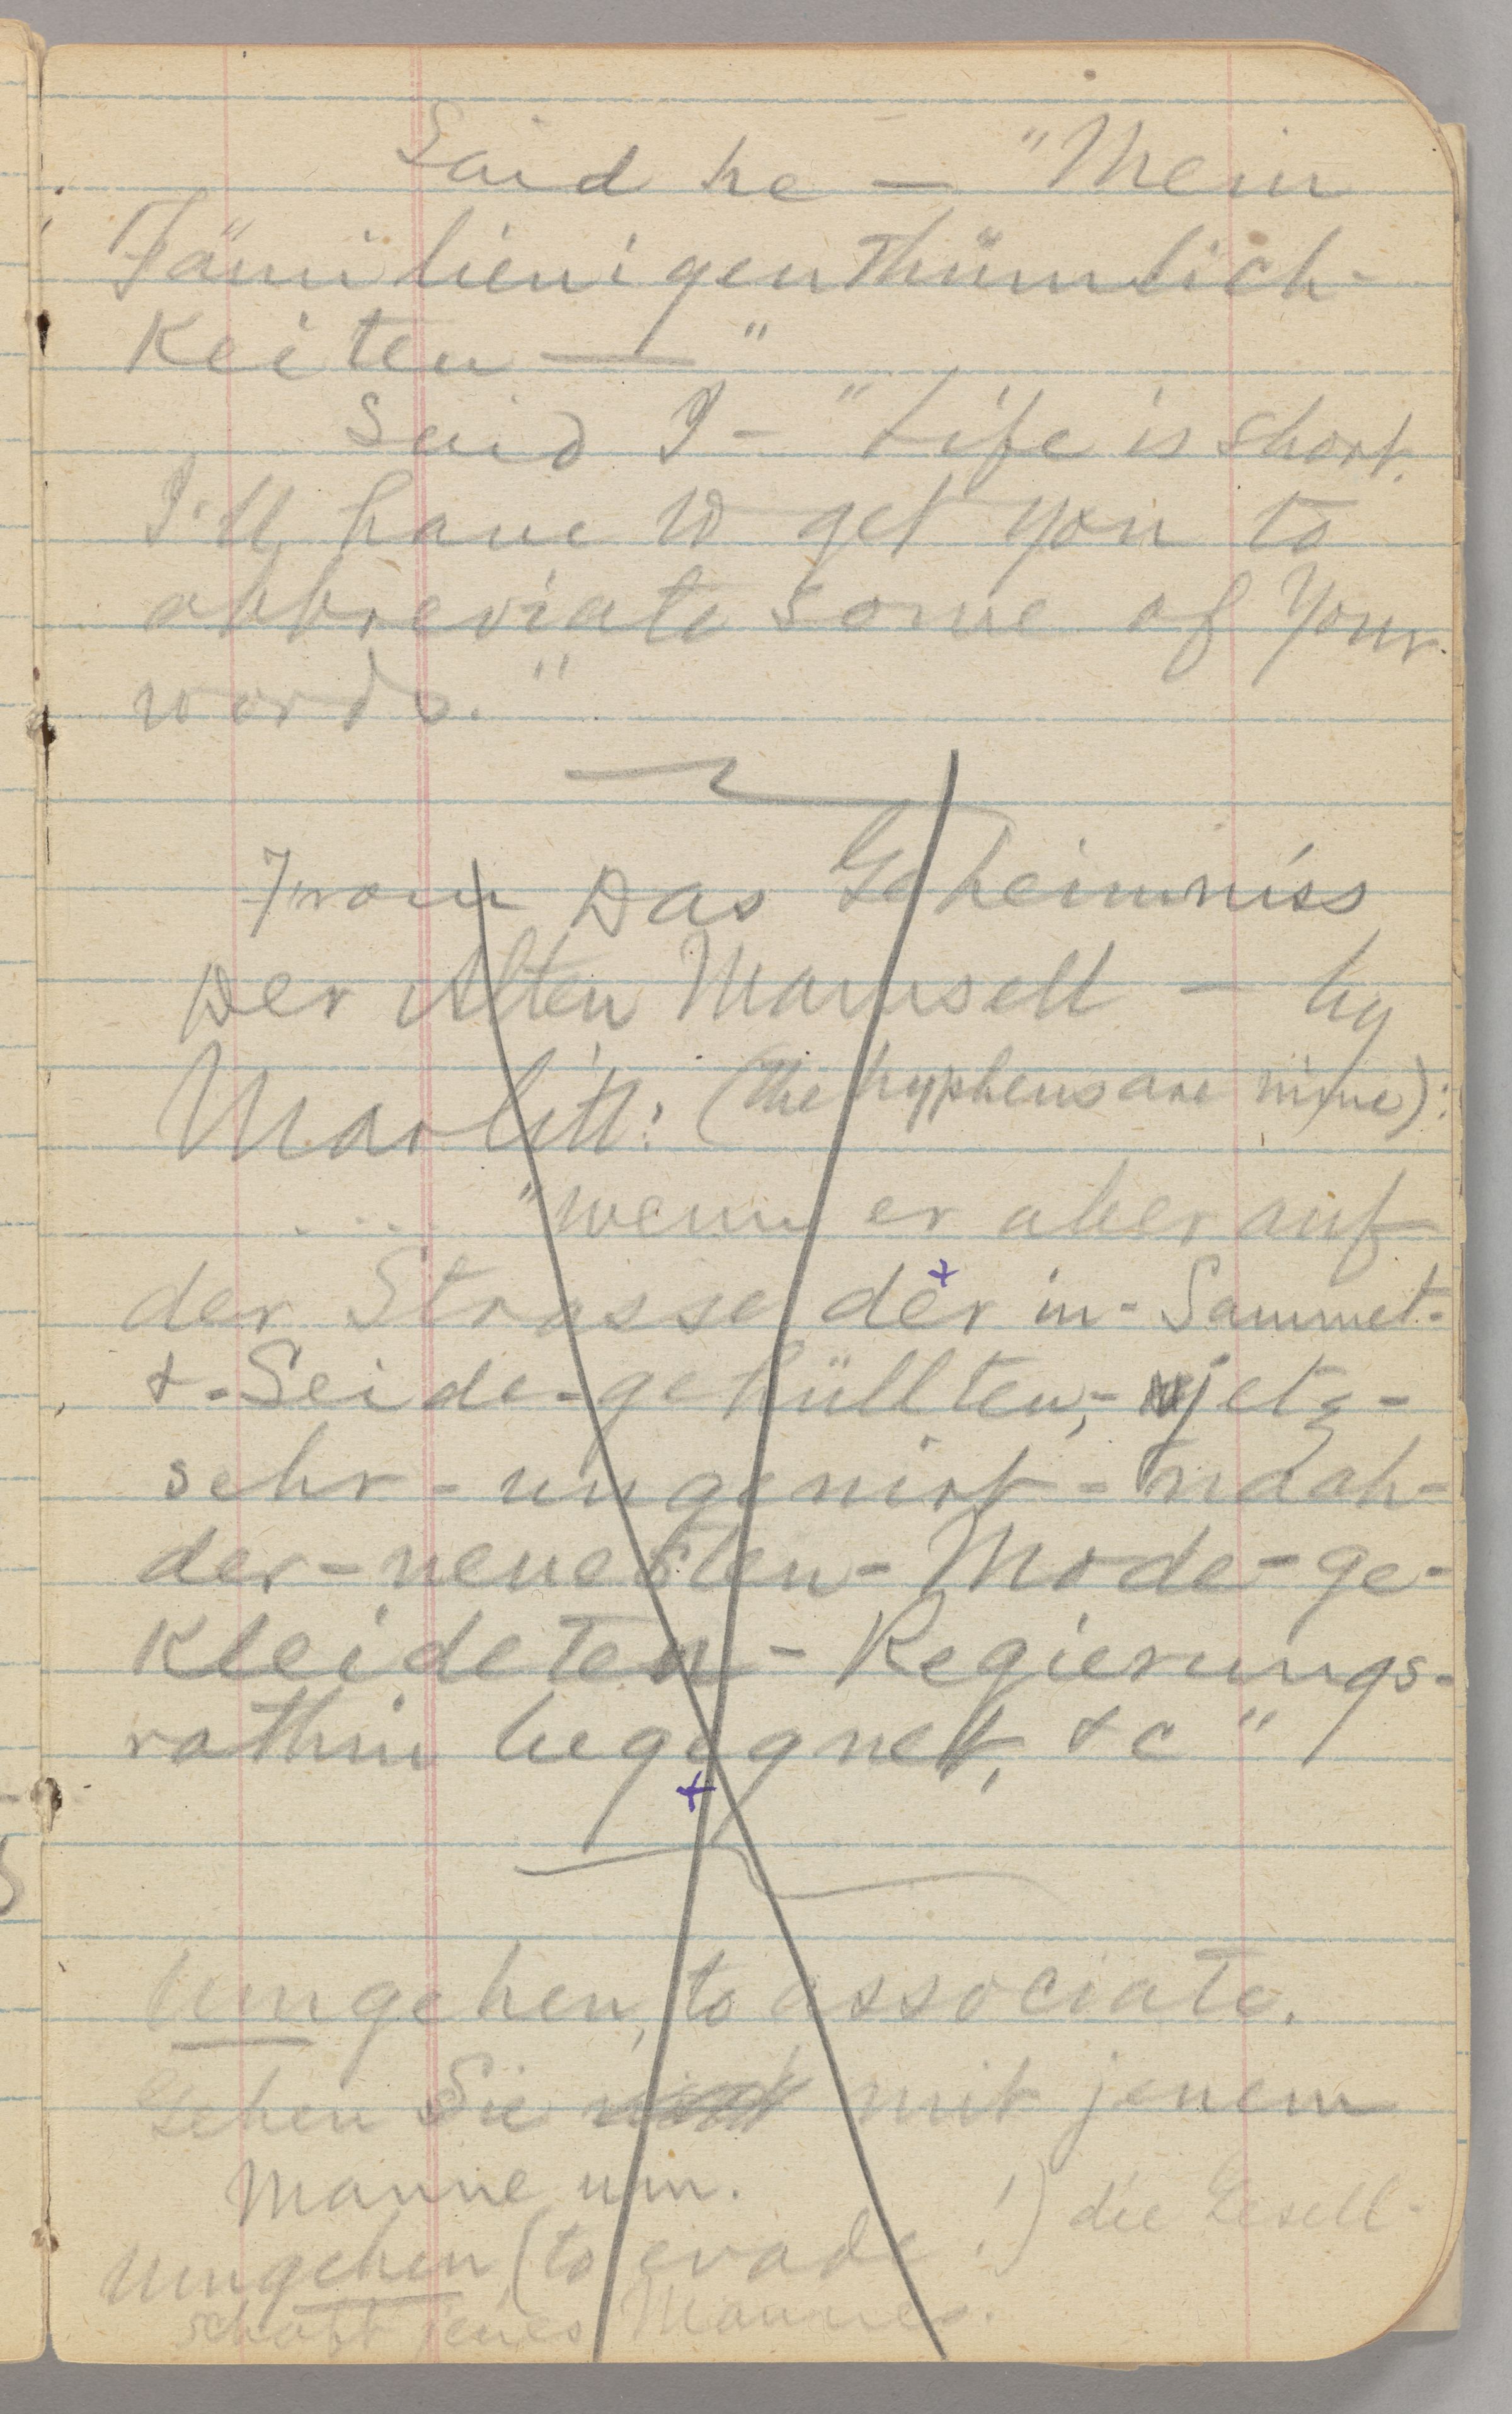 Said he — "Mein
Fämilienigenthümlich-
keiten — "
Said I — "Life is short.
I'll have to get you to
abbreviate some of your
words."
From Das Geheimniss
Der Alten Mamsell — by
Marlitt: (The hyphens are mine):
.... "wenn er aber auf
der Strasse der in-Sammet-
&-Seide-gehüllten,- jetz-
sehr-ungenirt-nach-
der-neuesten-Mode-ge-
kleideten-Regierungs-
rathin begegnet, &c"
Umgehen, to associate.
Gehen Sie mit jenem
Manne um.
Umgehen (to evade!) die Gesell-
schaft jenes Mannes.